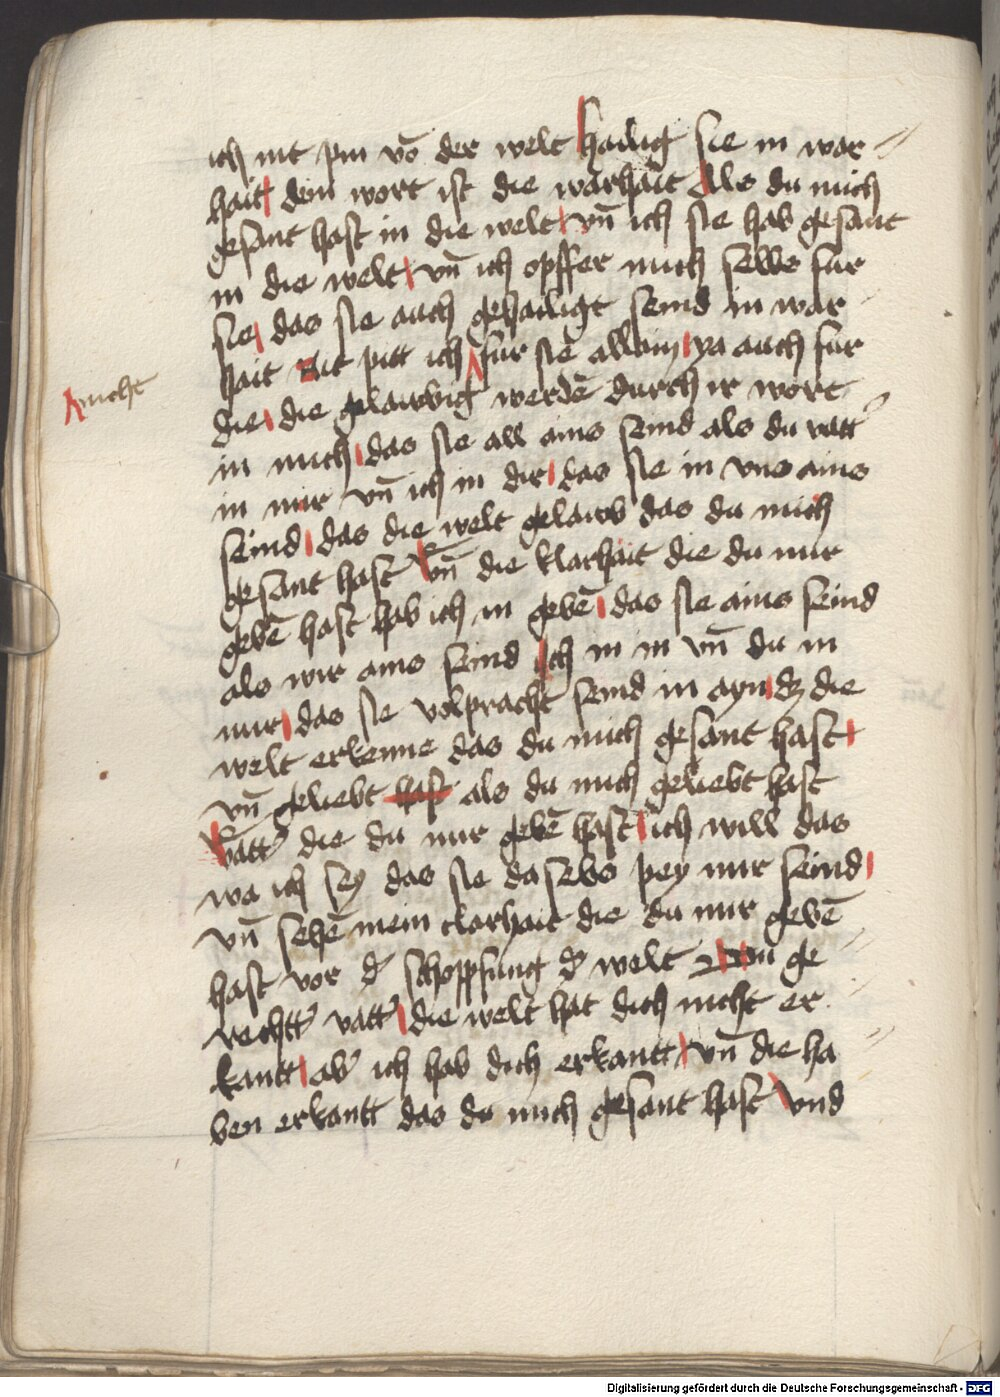 ich nit pin vō der welt hailig sie in war
hait dein wort ist die warhait Als du mich
gesant hast in die welt vn̄ ich sie hab gesant
in die welt vn̄ ich opffer mich selbs fur
sie das sie auch gehailigt seind in war
hait Nit pitt ich fur sie allain ya auch fur
nicht
die die gelawbig werdē durch ir wort
in mich das sie all ains seind als du vatt̓
in mir vn̄ ich in dir das sie in vns ains
seind das die welt gelawb das du mich
gesant hast Vn̄ die klarhait die du mir
gebē hast hab ich in gebē das sie ains seind
als wir ains seind Ich in in vn̄ du in
mir das sie volpracht seind in ayn dz die
welt erkenne das du mich gesant hast
vn̄ geliebt hast als du mich geliebt hast
Vatt̓ die du mir gebē hast ich will das
wa ich sey das sie daselbs pey mir seind
vn̄ sehē mein clarhait die du mir gebē
hast vor d̓ schopffung d̓ welt Du ge
rechtt̓ vatt̓ die welt hat dich nicht er
kantt ab̓ ich hab dich erkantt vn̄ die ha
ben erkantt das du mich gesant hast Vnd
Digitalisierung gefördert durch die Deutsche Forschungsgemeinschaft - DFG